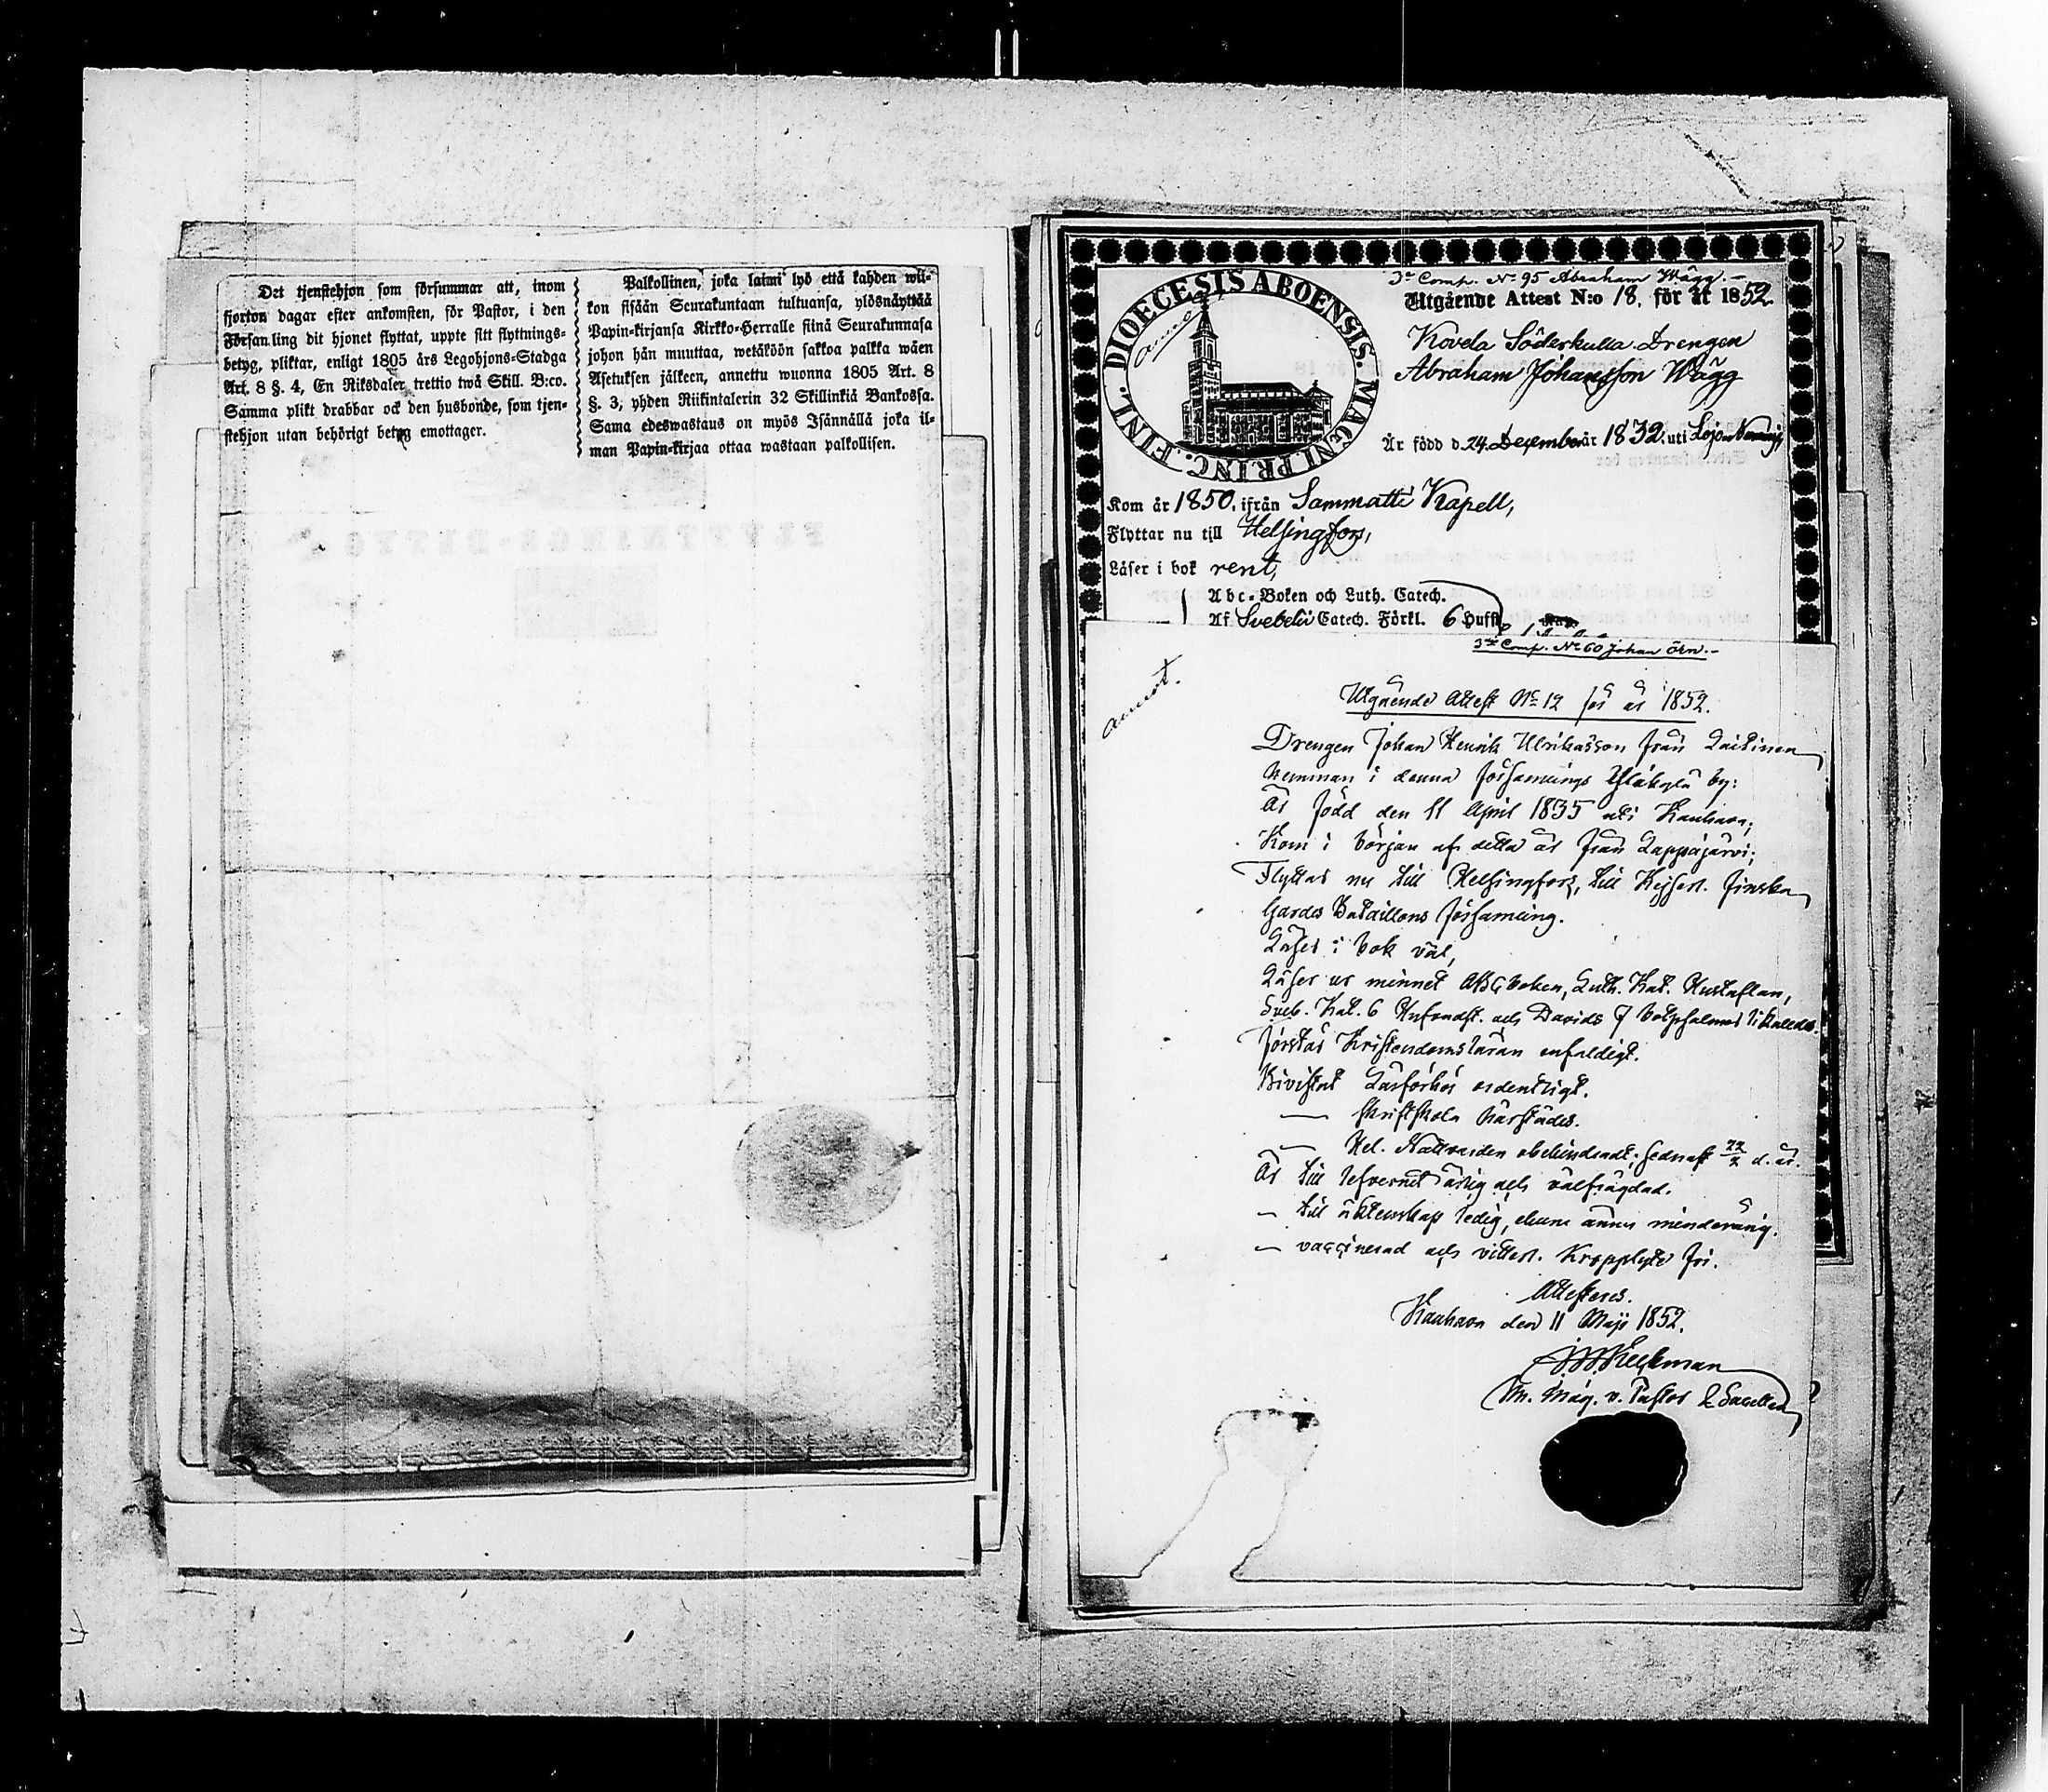 Det tjenstehjon som försummar att, inom
fjorton dagar efter ankomsten, för Pastor, i den
Församling dit hjonet flyttat, uppte sitt flyttnings-
betyg, pliktar, enligt 1805 års Legohjons-Stadga
Art. 8 §. 4, En Riksdaler trettio twå Skill. B:co.
Samma plikt drabbar ock den husbonde, som tjen-
stehjon utan behörigt betyg emottager.
Palkollinen, joka laimi lyö että kahden wii-
kon sisään Seurakuntaan tultuansa, ylösnäyttää
Papin-kirjansa Kirkko-Herralle siinä Seurakunnasa
johon hän muuttaa, wetäköön sakkoa palkka wäen
Asetuksen jälkeen, annettu wuonna 1805 Art. 8
§. 3, yhden Riikintalerin 32 Skillinkiä Bankossa.
Sama edeswastaus on myös Isännällä joka il-
man Papin-kirjaa ottaa wastaan palkollisen.
DIOECESIS ABOENSIS. MAGNI. PRINC. FINL.
3e Comp. No 95 Abraham Wägg.-
Utgående Attest N:o 18. för år 1852.
Kovela Söderkulla Drengen
Abraham Johansson Wägg
Är född d. 24 December år 1832. uti Lojo
Kom år 1850. ifrån Sammatti Kapell,
Flyttar nu till Helsingfors,
Läser i bok rent,
Abc-Boken och Luth. Catech.
Af Svebelii Catech. Förkl. 6 Hufst.
3e Comp. No 60 Johan Örn.-
Utgående Attest No 12 för år 1852.
Drengen Johan Henrik Ulrikasson från
hemman i denna församlings Ylikylä by:
Är född den 11 April 1835 uti Kauhava;
Kom i början af detta år från Lappajärvi;
Flyttar nu till Helsingfors, till Kejserl. Finska
Gardes Bataillons församling.
Läser i bok väl,
Läser ur minnet ABCboken, Luth. Kat. Hustaflan,
Sveb. Kat. 6 Hufvudst. och Davids 7 botpsalmer likaledes.
Förstår Kristendomsläran enfaldigt.
Bivistat Läsförhör ordentligt.
— Skriftskola härstädes.
— Hel. Nattvarden obehindradt, sednast d. år.
Är till lefvernet ärlig och välfrägdad.
— till äktenskap ledig, ehuru ännu minderårig.
— vaccinerad och vitterl. kropplyte fri.
Attesteres.
Kauhava den 11 Maji 1852.